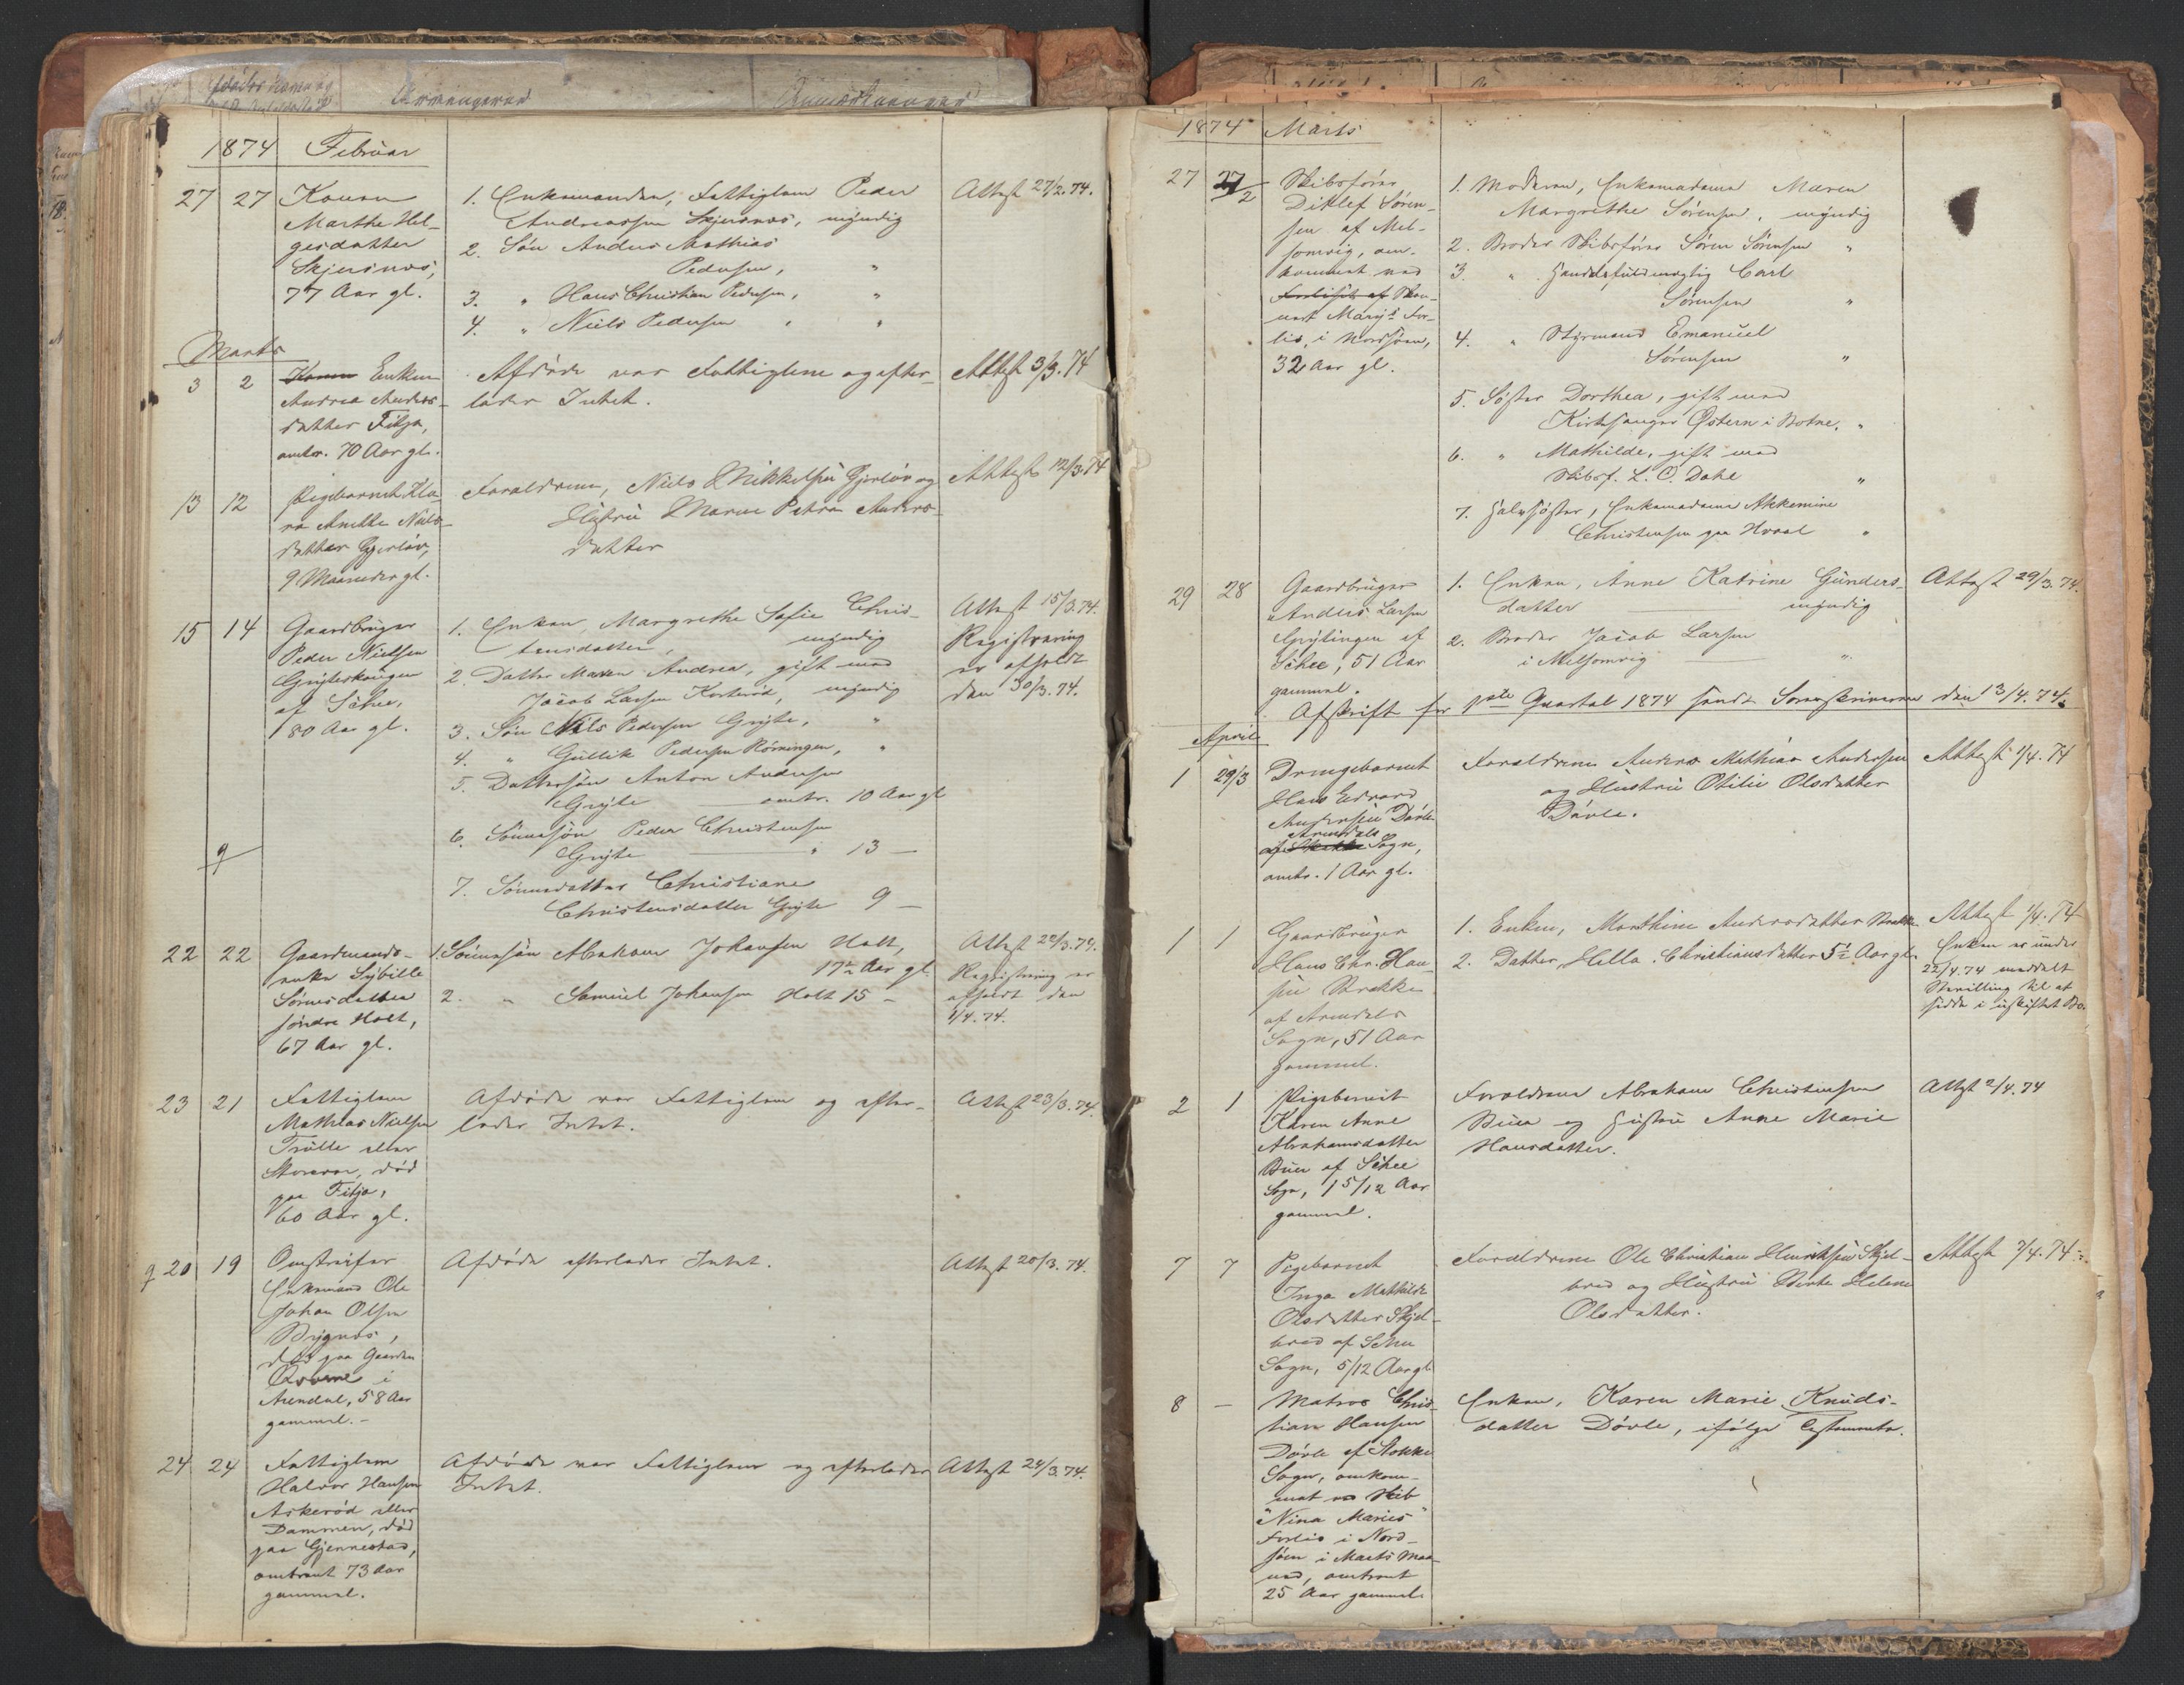 1874 Februar
27 27 Konen
Marthe Hel-
gesdatter
Skjersnæs,
77 Aar gl.
1. Enkemanden, Fattiglem Peder
Andreassen Skjersnæs, myndig
2. Søn Anders Mathias
Pedersen, "
3. " Hans Christian Pedersen, "
4. " Niels Pedersen " "
Attest 27/2. 74.
Marts
3 2 Konen Enken
Andrea Anders-
datter Fitja,
omtr. 70 Aar gl.
Afdøde var Fattiglem og efter-
lader Intet.
Attest 3/3. 74
13 12 Pigebarnet Kla-
ra Anette Niels-
datter Gjerløv,
9 Maaneder gl.
Forældrene, Niels Mikkelsen Gjerløv og
Hustru Maren Petra Anders-
datter
Attest 12/3. 74
15 14 Gaardbruger
Peder Nielsen
Gryteskougen
af Sëhee,
80 Aar gl.
1. Enken, Margrethe Sofie Chris-
tensdatter, myndig
2. Datter Maren Andrea, gift med
Jacob Larsen Korterød, myndig
3. Søn Niels Pedersen Gryte, "
4. " Gullik Pedersen Rørningen, "
5. Dattersøn Anton Andersen
Gryte omtr. 10 Aar gl
6. Sønnesøn Peder Christensen
Gryte " 13 —
7. Sønnedatter Christiane
Christensdatter Gryte 9 —
Attest 15/3. 74.
Registrering
er afholdt
den 30/3. 74.
22 22 Gaardmands-
enke Sybille
Sørensdatter
søndre Holt,
67 Aar gl.
1. Sønnesøn Abraham Johansen Holt,
17½ Aar gl.
2. " Samuel Johansen Holt 15 —
Attest 22/3. 74.
Registrering er
afholdt den
1/4. 74.
23 21 Fattiglem
Mathias Nielsen
Trulle eller
Storevar, død
paa Fitja,
60 Aar gl.
Afdøde var Fattiglem og efter-
lader Intet.
Attest 23/3. 74.
20 19 Omstreifer
Enkemand Ole
Johan Olsen
Brygnæs,
død paa Gaarden
Qværne i
Arendal, 58 Aar
gammel. –
Afdøde efterlader Intet.
Attest 20/3. 74.
24 24 Fattiglem
Halvor Hansen
Askerød eller
Dammen, død
paa Gjennestad,
omtrent 73 Aar
gammel.
Afdøde var Fattiglem og efterlader
Intet.
Attest 24/3. 74.
1874 Marts
27 27/2 Skibsfører
Ditlef Søren-
sen af Mel-
somvig, om-
kommet ved
Forliset af Skon-
nert Mary's For-
lis, i Nordsøen,
32 Aar gl.
1. Moderen, Enkemadame Maren
Margrethe Sørensen, myndig
2. Broder Skibsfører Søren Sørensen "
3. " Handelsfuldmægtig Carl
Sørensen "
4. " Styrmand Emanuel
Sørensen "
5. Søster Dorthea, gift med
Kirkesanger Østern i Botne, "
6. " Mathilde, gift med
Skibsf. L. C. Dahl "
7. Halvsøster, Enkemadame Akkemine
Christensen paa Hvaal "
29 28 Gaardbruger
Anders Larsen
Grytingen af
Sëhee, 51 Aar
gammel.
1. Enken, Anne Katrine Gunders-
datter myndig
2. Broder Jacob Larsen
i Melsomvig "
Attest 29/3. 74.
Afskrift for 1ste Quartal 1874 sendt Sorenskriveren den 13/4. 74.
April
1 29/3 Drengebarnet
Hans Edvard
Andersen Døvle
Arendals
af Stokke Sogn,
omtr. 1 Aar gl.
Forældrene Anders Mathias Andersen
og Hustru Otilie Olsdatter
Døvle.
Attest 1/4. 74
1 1 Gaardbruger
Hans Chr. Han-
sen Brække
af Arendals
Sogn, 51 Aar
gammel.
1. Enken, Marthine Andersdatter Brække
2. Datter, Hella Christiansdatter 5½ Aar gl.
Attest 1/4. 74
Enken er under
22/4. 74 meddelt
Bevilling til at
sidde i uskiftet Bo.
2 1 Pigebarnet
Karen Anne
Abrahamsdatter
Buer af Sëhee
Sogn, 1 5/12 Aar
gammel.
Forældrene Abraham Christensen
Buer og Hustru Anne Marie
Hansdatter.
Attest 2/4. 74
7 7 Pigebarnet
Inga Mathilde
Olsdatter Skjel-
bred af Sehee
Sogn, 5/12 Aar gl
Forældrene Ole Christian Henriksen Skjel-
bred og Hustru Berte Helene
Olsdatter.
Attest 7/4. 74
8 — Matros Chris-
tian Hansen
Døvle af Stokke
Sogn, omkom-
met ved Skib
"Nina Maries"
Forlis i Nord-
søen i Marts Maa-
ned, omtrent
25 Aar gammel.
Enken, Karen Marie Knuds-
datter Døvle, ifølge Testamente.